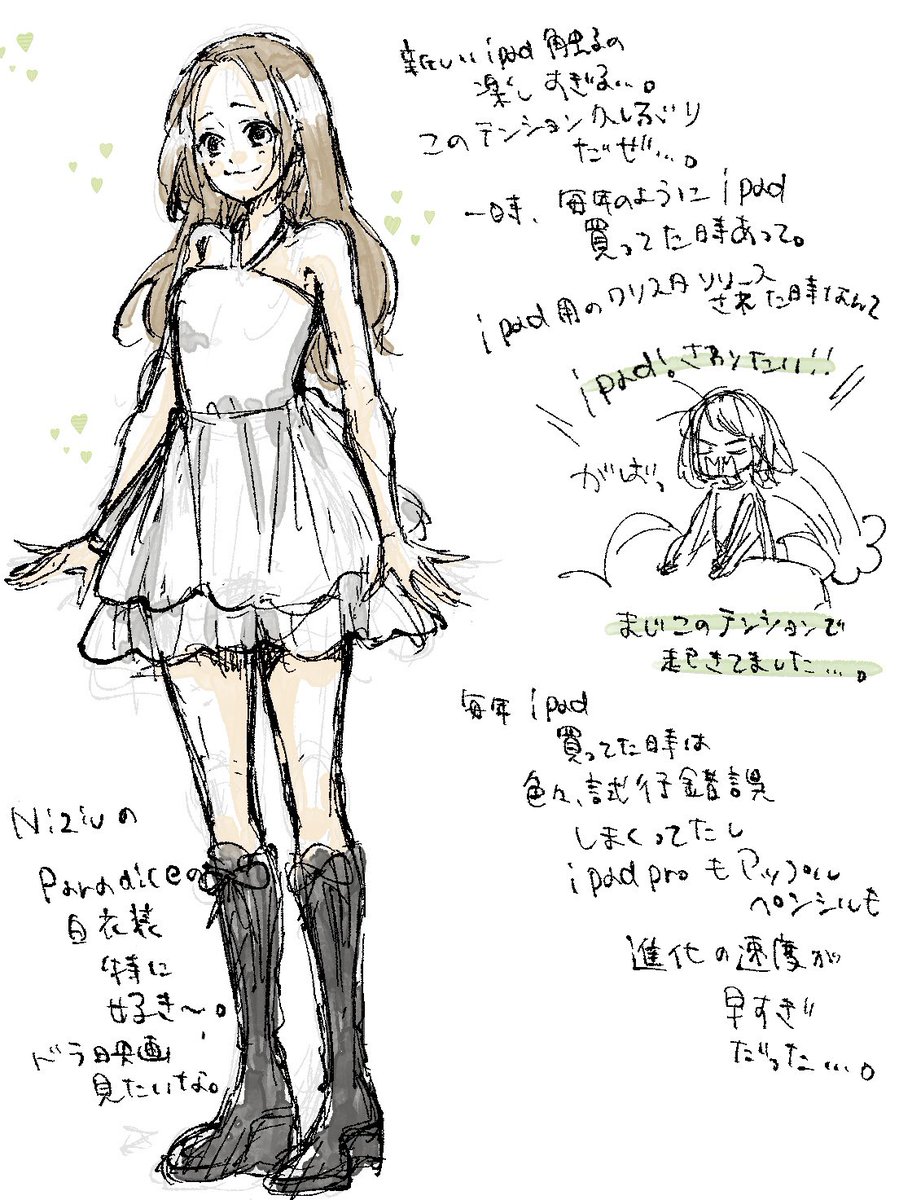 新しいipad触るの
楽しすぎる…。
このテンションひさしぶり
だぜ…。
一時、毎年のようにipad
買ってた時あって。
ipad用のクリスタリリース
された時なんて
ipad!さわりたい!!
がばっ
まじこのテンションで
起きてました…。
毎年ipad
買ってた時は
色々、試行錯誤
しまくってたし
ipad proもアップル
ペンシルも
進化の速度が
早すぎ
だった…。
Niziuの
Paradiceの
白衣装
特に
好き〜。
ドラ映画
見たいな。